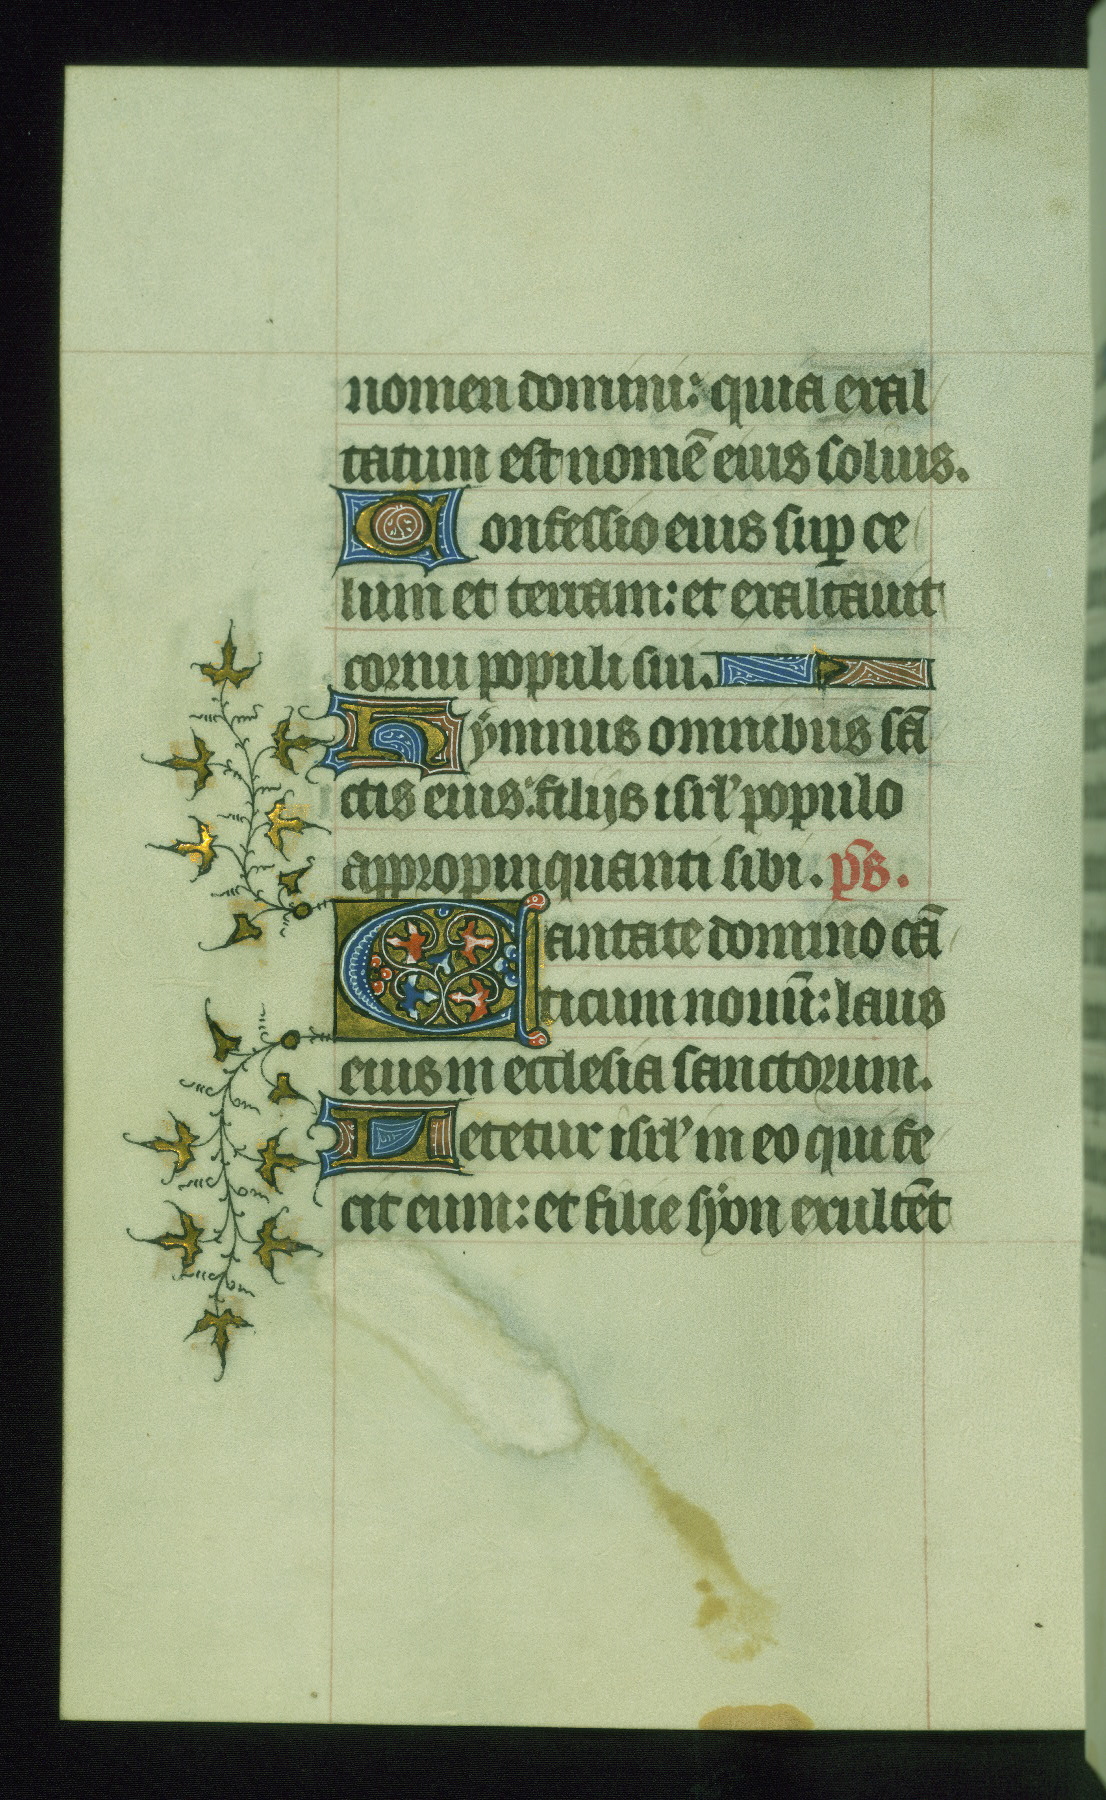 nomen domini: quia exal
tatum est nomē eius solius.
Confessio eius sup ce
lum et terram: et exaltauit
cornu populi sui.
Hymnus omnibus sā
ctis eius: filijs isrl' populo
appropinquanti sibi. ps̄.
Cantate domino cā
ticum nouū: laus
eius in ecclesia sanctorum.
Letetur isrl' in eo qui fe
cit eum: et filie syon exultēt